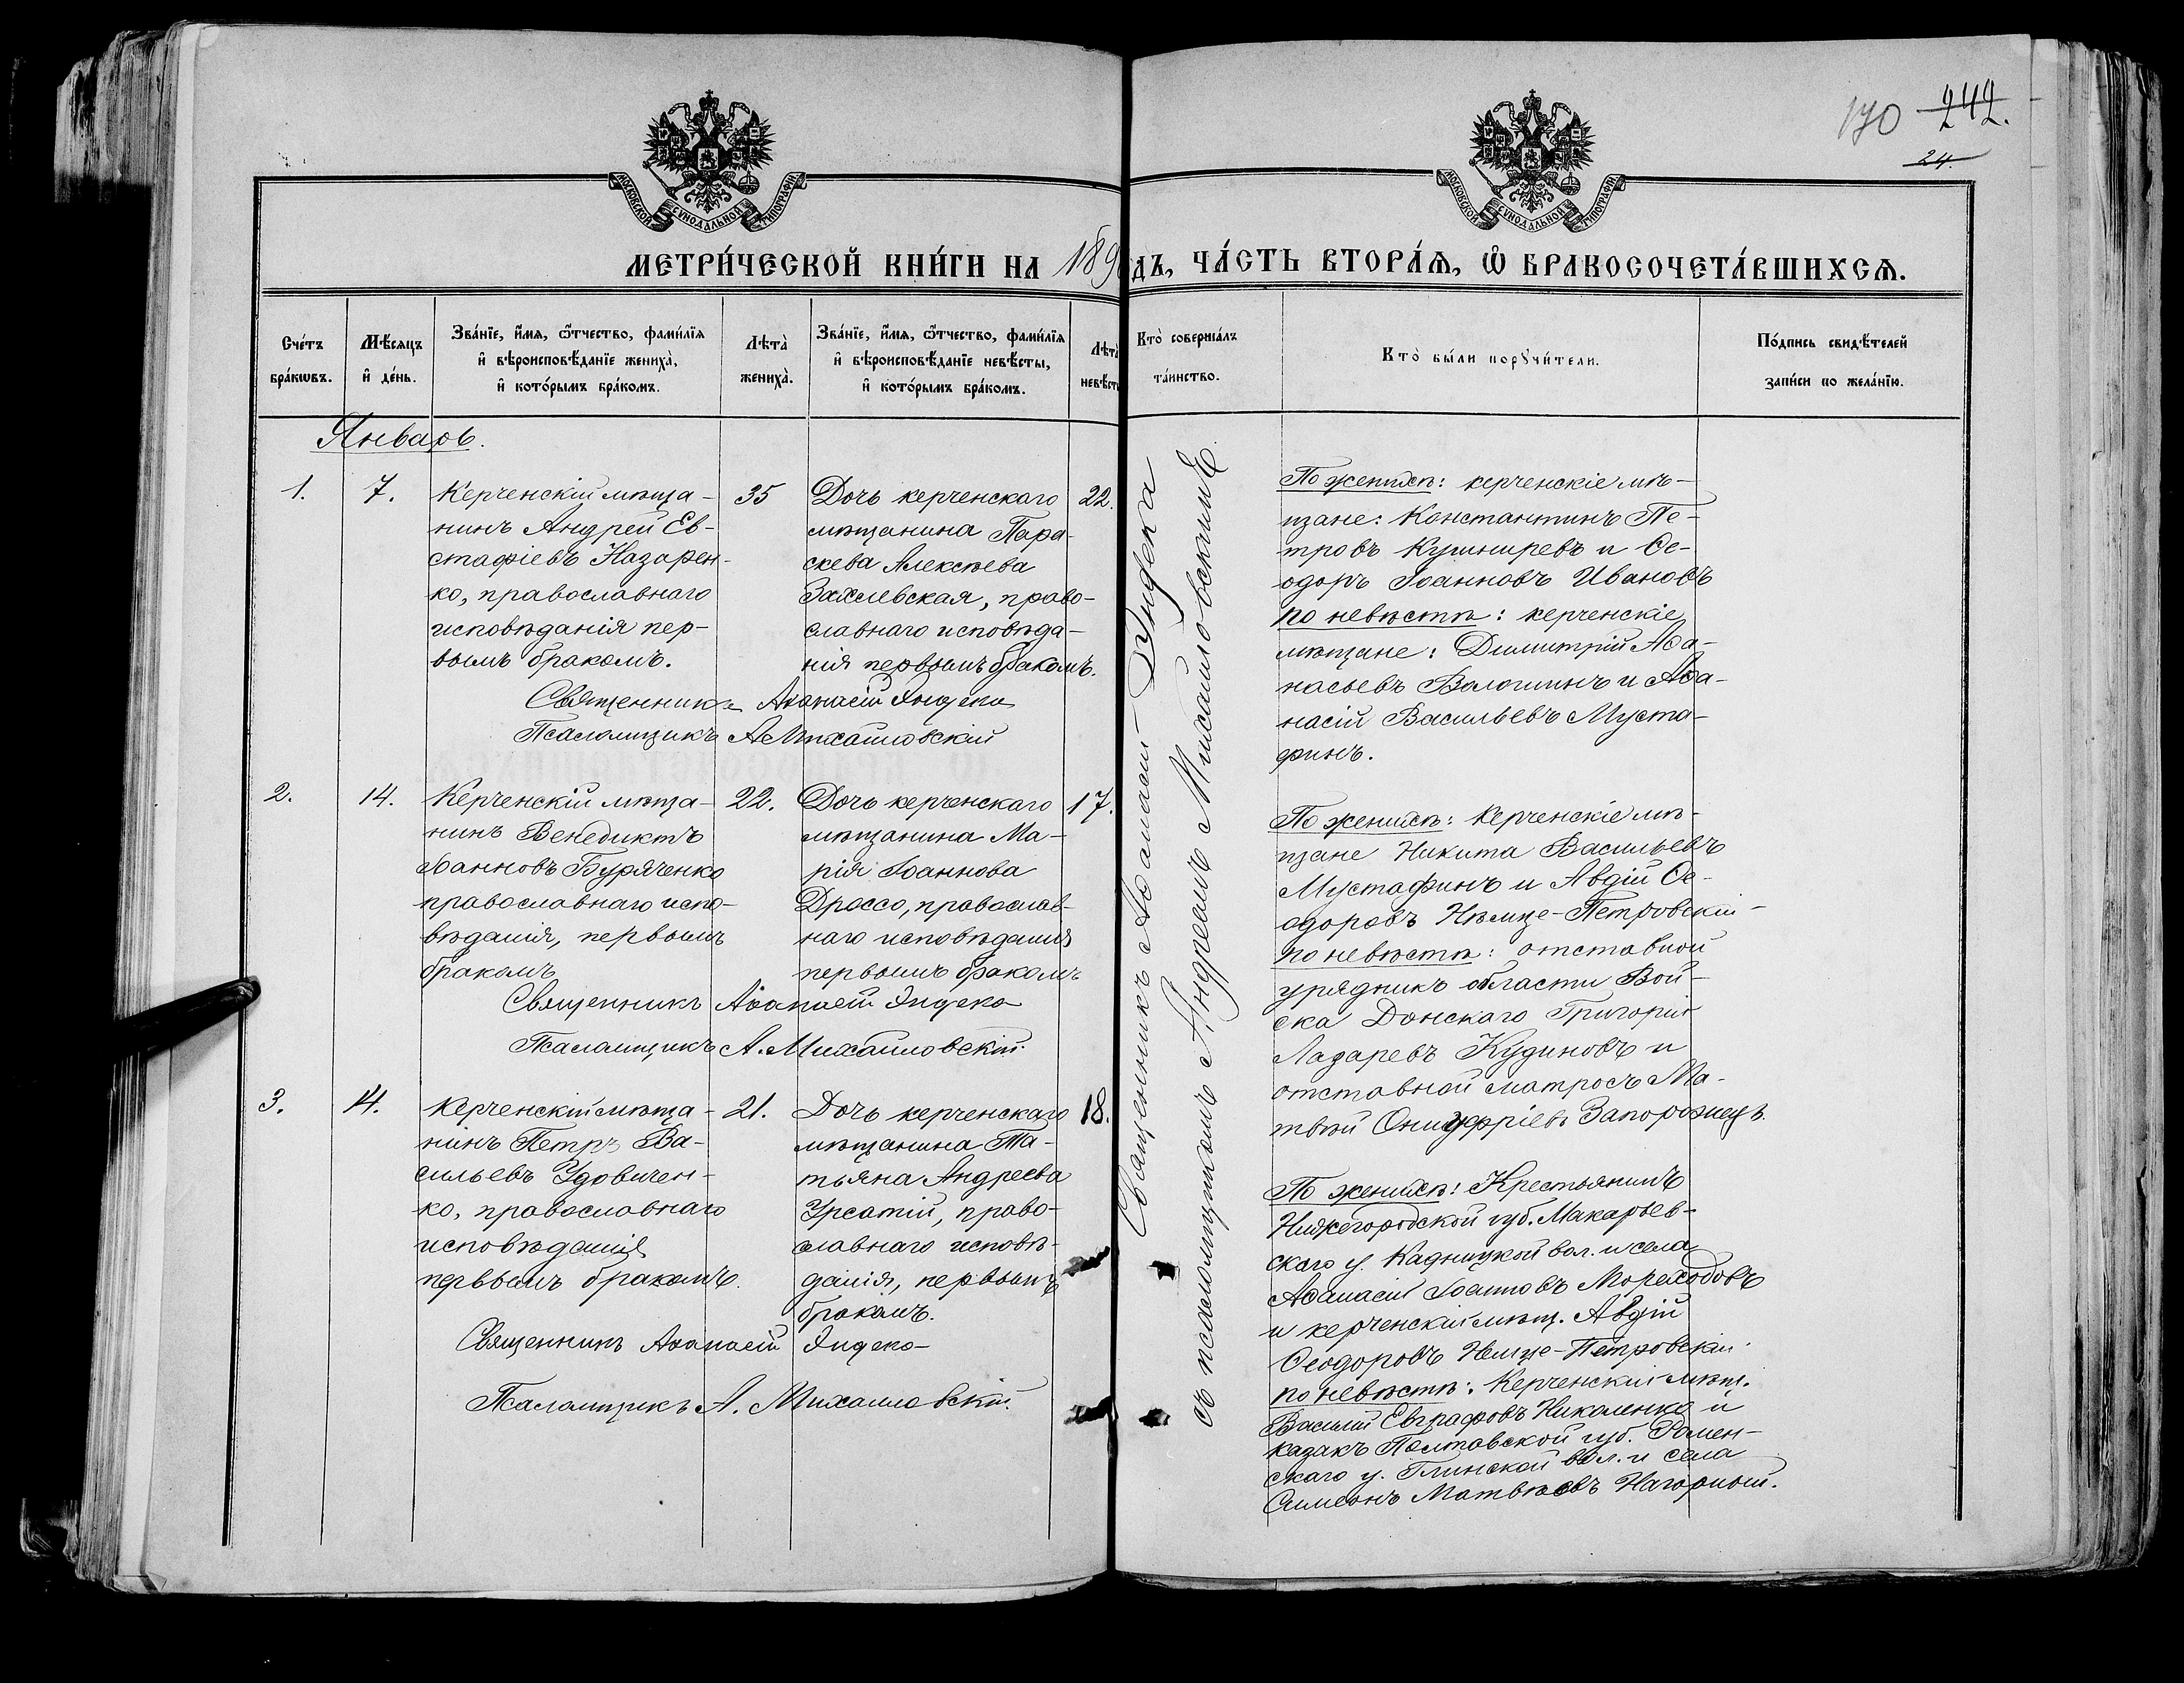 170 242.
24.
МОСКОВСКОЙ СѴНОДАЛЬНОЙ ТИПОГРАФІИ
МОСКОВСКОЙ СѴНОДАЛЬНОЙ ТИПОГРАФІИ
МЕТРИ́ЧЕСКОЙ КНИ́ГИ НА 189
ДЪ, ЧА́СТЬ ВТОРА́Ѧ, Ѡ҆ БРАКОСОЧЕТА́ВШИХСѦ.
Сче́тъ
бра́кѡвъ.
Мѣ́сяцъ
и҆ де́нь.
Зва́нїе, и҆́мѧ, ѻ҆́тчество, фами́лїѧ
и҆ вѣроисповѣ́данїе жениха̀,
и҆ кото́рымъ бра́комъ.
Лѣта̀
жениха̀.
Зва́нїе, и҆́мѧ, ѻ҆́тчество, фами́лїѧ
и҆ вѣроисповѣ́данїе невѣ́сты,
и҆ кото́рымъ бра́комъ.
Лѣта
невѣсты
Кто̀ соверша́лъ
та́инство.
Кто̀ бы́ли порꙋчи́тели.
По́дпись свидѣ́телей
за́писи по жела́нїю.
Январь.
1.
7.
Керченскій мѣща-
нинъ Андрей Ев-
стафіевъ Назарен-
ко, православнаго
исповѣданія пер-
вымъ бракомъ.
35
Дочь керченскаго
мѣщанина Пара-
скева Алексѣева
Захлевская, право-
славнаго исповѣда-
нія первымъ бракомъ.
22.
Священникъ Аѳанасій Яндека
Псаломщикъ А Михайловскій
Священникъ Аѳанасій Яндека
съ псаломщикомъ Андреемъ Михайловскимъ
По женихѣ: керченскіе мѣ-
щане: Константинъ Пе-
тровъ Кушниревъ и Ѳе-
одоръ Іоанновъ Ивановъ
по невѣстѣ: керченскіе
мѣщане: Димитрій Аѳа-
насьевъ Волошинъ и Аѳа-
насій Васильевъ Муста-
финъ.
2.
14.
Керченскій мѣща-
нинъ Венедиктъ
Іоанновъ Буряченко
православнаго испо-
вѣданія, первымъ
бракомъ
22.
Дочь керченскаго
мѣщанина Ма-
рія Іоаннова
Дроссо, православ-
наго исповѣданія
первымъ бракомъ
17.
Священникъ Аѳанасій Яндека
Псаломщикъ А. Михайловскій.
По женихѣ: керченскіе мѣ-
щане Никита Васильевъ
Мустафинъ и Авдій Ѳе-
одоровъ Нѣмце-Петровскій-
по невѣстѣ: отставной
урядникъ области Вой-
ска Донскаго Григорій
Лазаревъ Кудиновъ и
отставной матросъ Ма-
твѣй Онуфріевъ Запорожецъ.
3.
14.
Керченскій мѣща-
нинъ Петръ Ва-
сильевъ Удовичен-
ко, православнаго
исповѣданія
первымъ бракомъ.
21.
Дочь керченскаго
мѣщанина Та-
тьяна Андреева
Урсатій, право-
славнаго исповѣ-
данія, первымъ
бракомъ.
18.
Священникъ Аѳанасій Яндека
Псаломщикъ А. Михайловскій.
По женихѣ: Крестьянинъ
Нижегородской губ. Макарьев-
скаго у. Кадницкой вол. и села
Аѳанасій Іоанновъ Мореходовъ
и керченскій мѣщ. Авдій
Ѳеодоровъ Немце-Петровскій.
по невѣстѣ: Керченскій мѣщ.
Василій Евграфовъ Николенко и
казакъ Полтавской губ. Ромен-
скаго у. Глинской вол. и села
Симеонъ Матвѣевъ Нагорный.